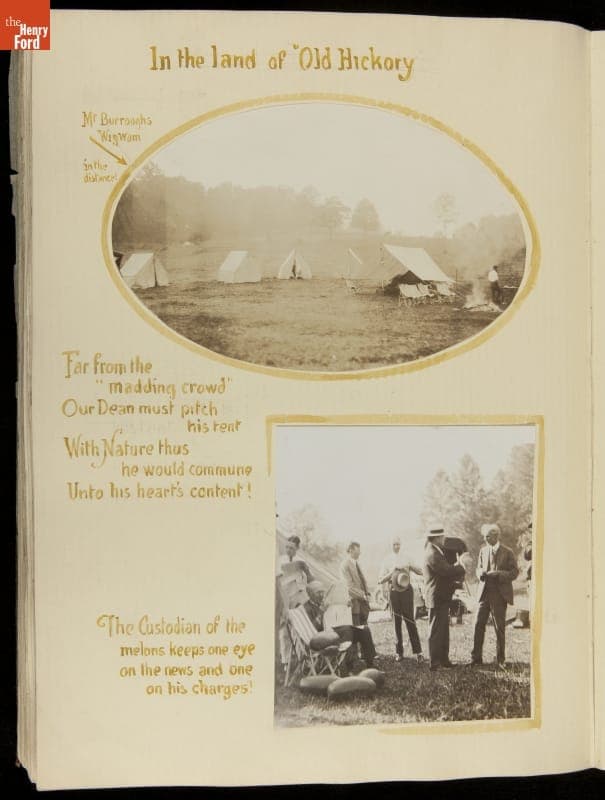 the
Henry
Ford
In the land of "Old Hickory"
Mr Burroughs
Wigwam
in the
distance!
Far from the
"madding crowd"
Our Dean must pitch
his tent
With Nature thus
he would commune
Unto his heart's content!
The Custodian of the
melons keeps one eye
on the news and one
on his charges!